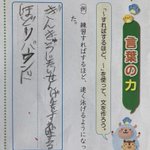 言葉の力
「～すればするほど、～」を使って、文を作ろう。
(例) 練習すればするほど、速く泳げるようになっ
せんげんをすればする
ほどリバウンド